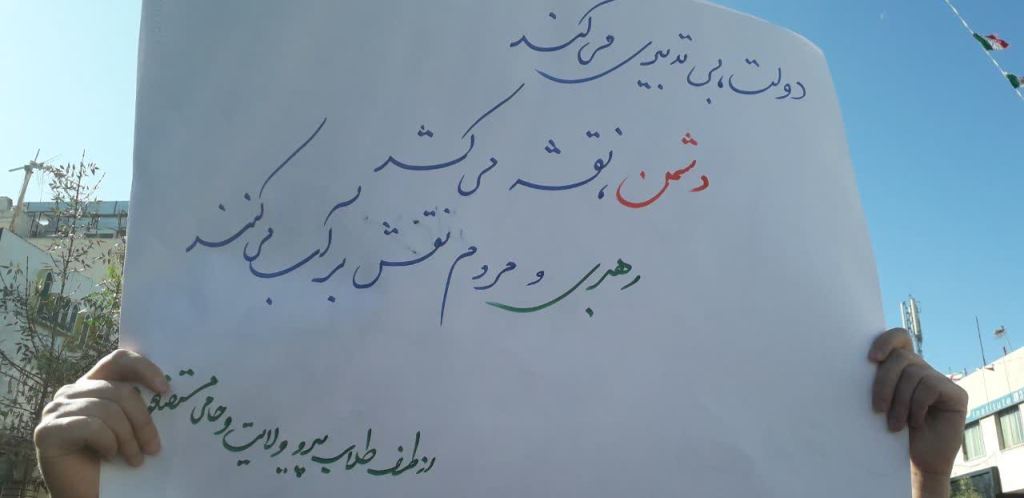 دولت، بی تدبیری می‌کند
دشمن، نقشه می‌کشد
رهبری و مردم نقش بر آب می‌کنند
از طرف طلاب پیرو ولایت و حامی مستضعف
Institute